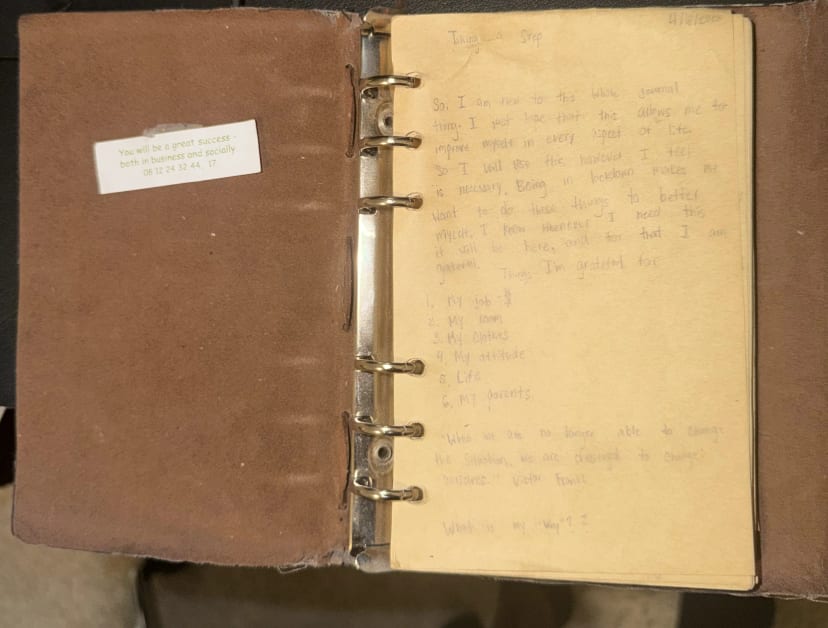 You will be a great success -
both in business and socially
06 12 24 32 44, 17
Taking a Step
So, I am new to this whole journal
thing. I just hope that this allows me to
improve myself in every aspect of life.
So I will use this however I feel
is necessary. Being in lockdown makes me
want to do these things to better
myself. I know whenever I need this
it will be here, and for that I am
grateful.
Things I'm grateful for
1. My job - $
2. My room
3. My clothes
4. My attitude
5. Life
6. My parents
"When we are no longer able to change
the situation, we are challenged to change
ourselves." Victor Frankl
What is my "Why"?